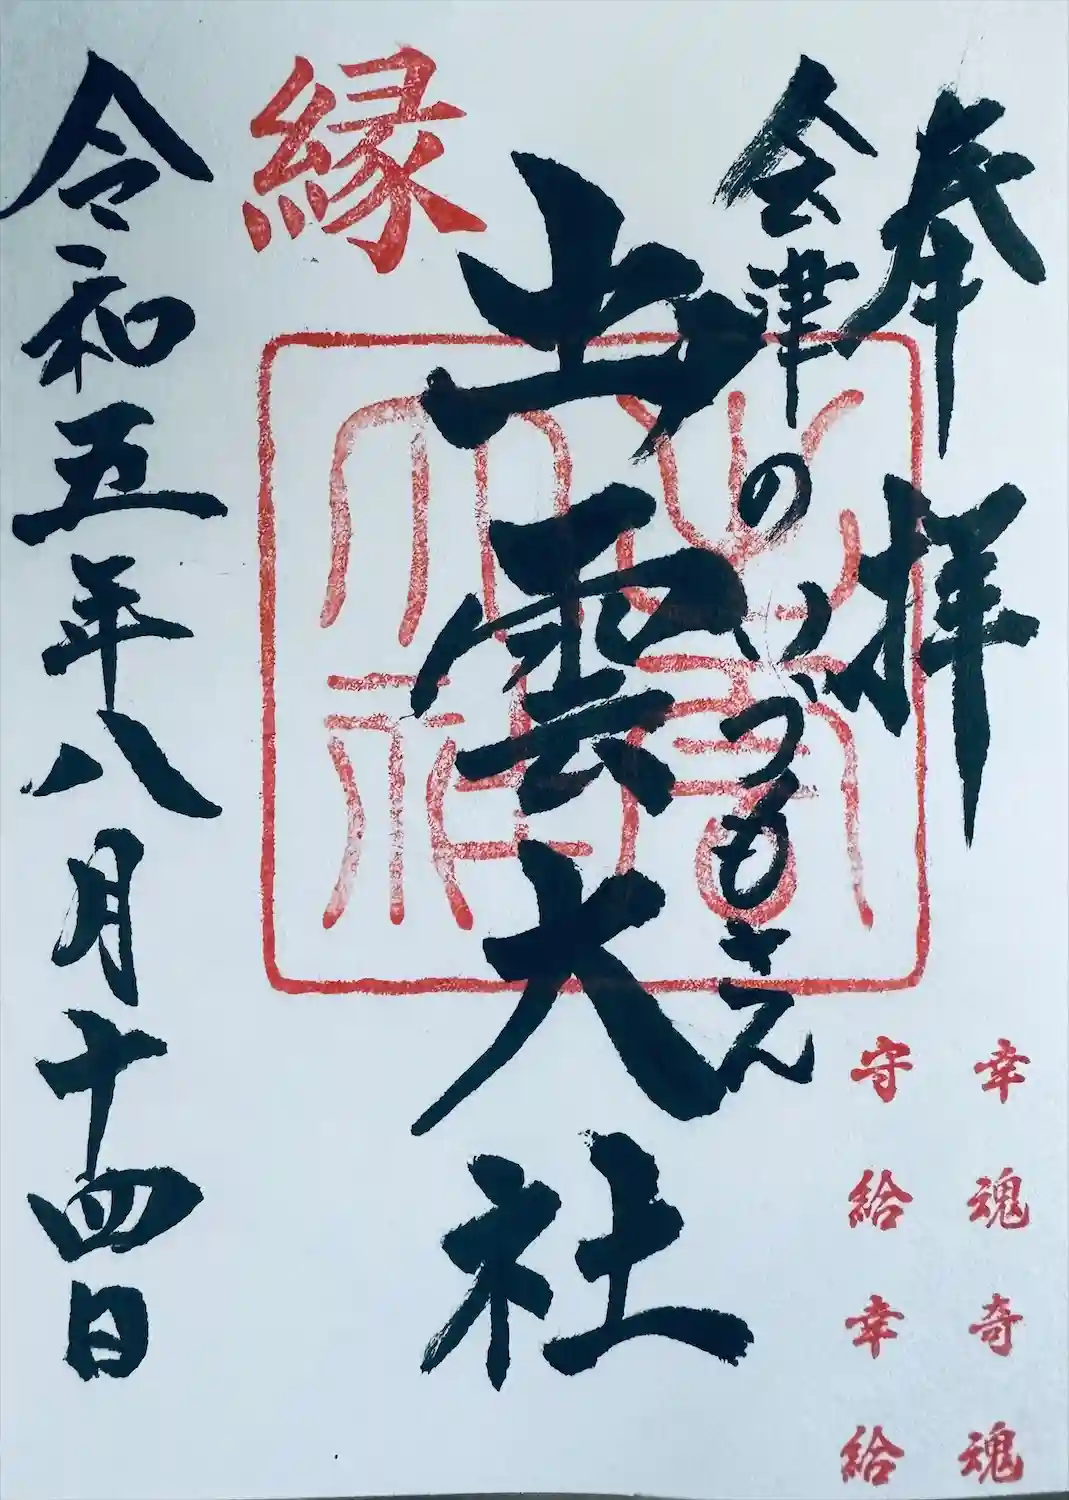 奉拝
幸魂奇魂
守給幸給
会津のいづもさん
出雲大社
出雲
大社
縁
令和五年八月十四日